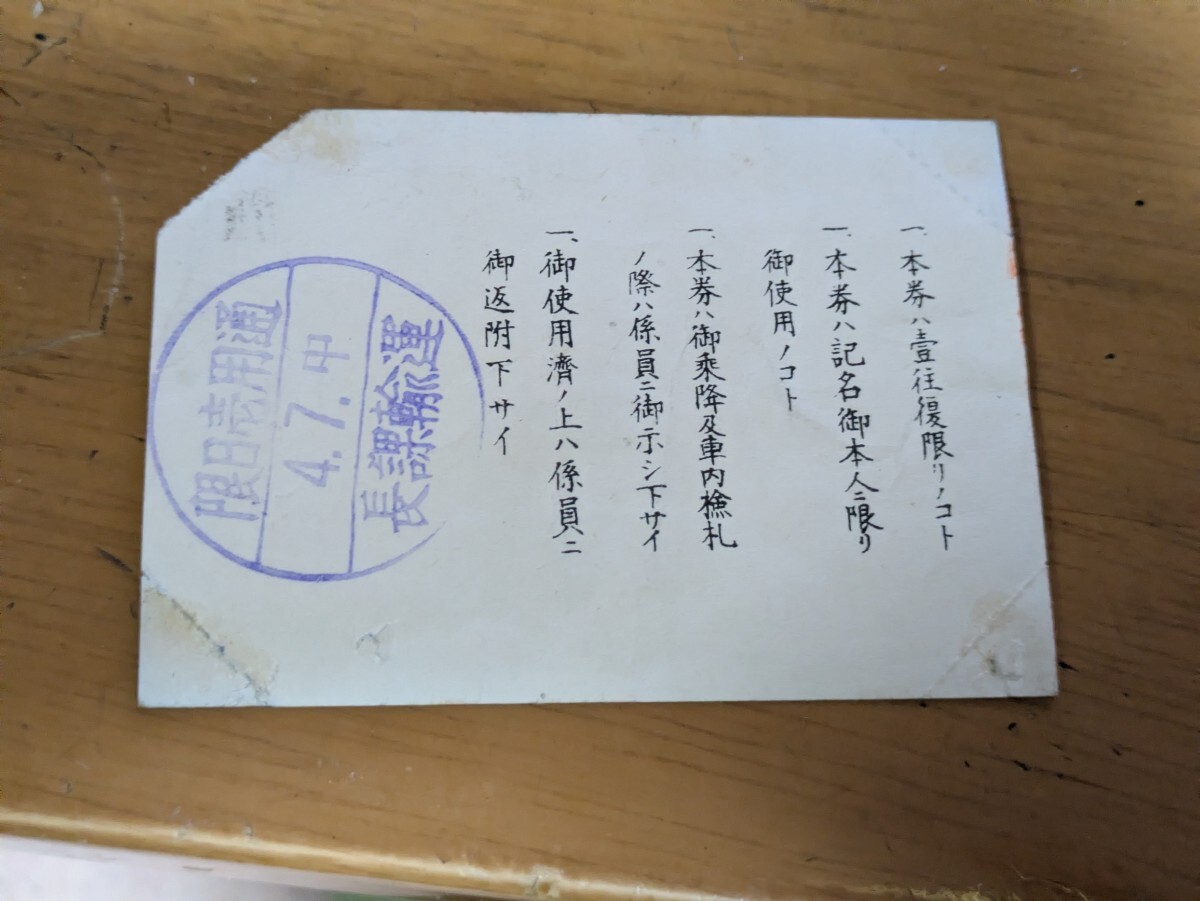 一、本券ハ壹往復限リノコト
一、本券ハ記名御本人ニ限リ
御使用ノコト
一、本券ハ御乘降及車内檢札
ノ際ハ係員ニ御示シ下サイ
一、御使用濟ノ上ハ係員ニ
御返附下サイ
運輸課長
4.7.中
通用壱日限